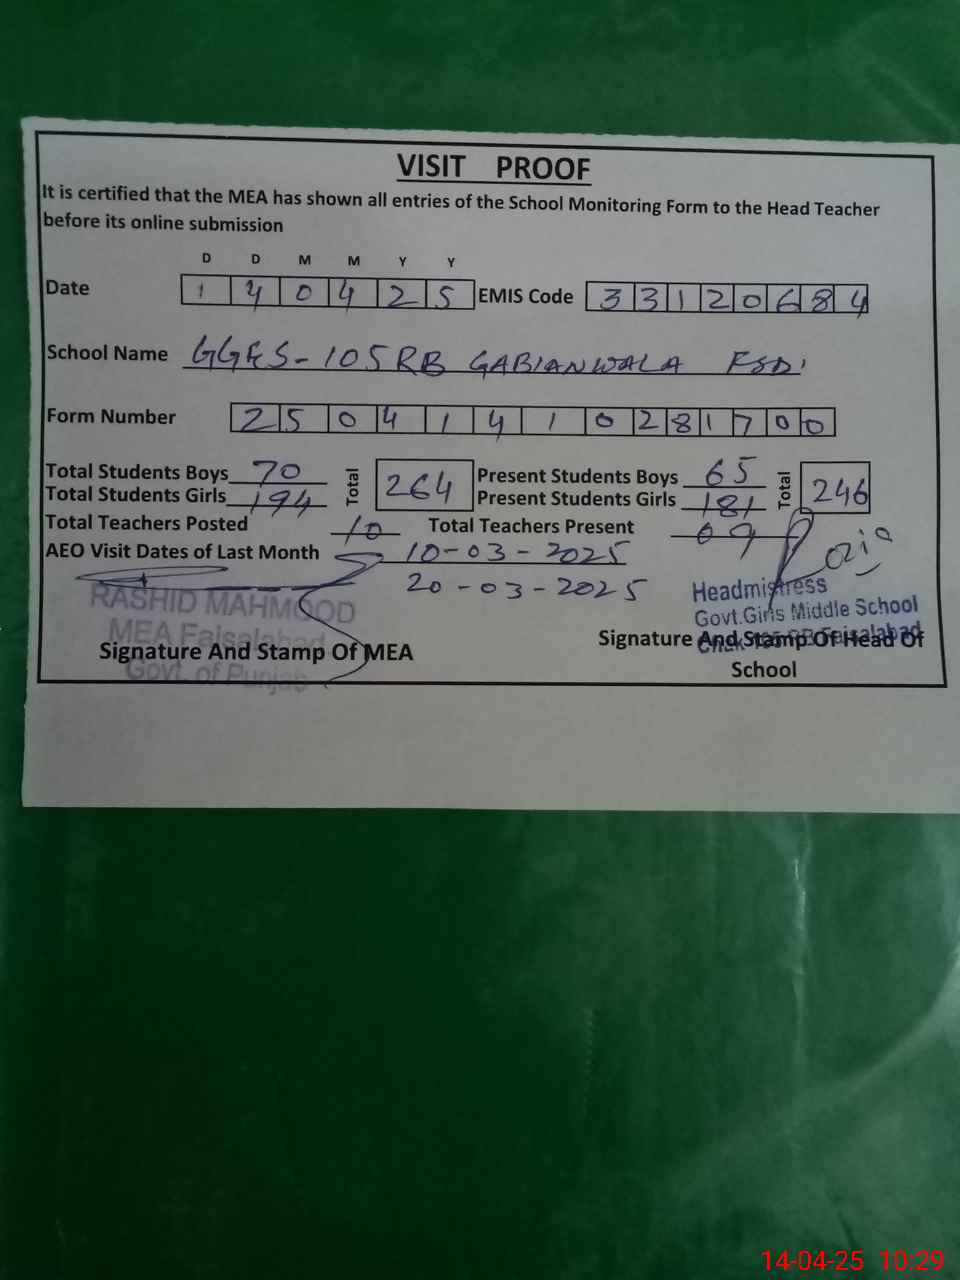 VISIT PROOF
It is certified that the MEA has shown all entries of the School Monitoring Form to the Head Teacher
before its online submission
D D M M Y Y
Date 1 4 0 4 2 5 EMIS Code 3 3 1 2 0 6 8 4
School Name GGES-105 RB GABIANWALA FSD
Form Number 2 5 0 4 1 4 1 0 2 8 1 7 0 0
Total Students Boys 70 Total 264 Present Students Boys 65 Total 246
Total Students Girls 194 Present Students Girls 181
Total Teachers Posted 10 Total Teachers Present 09
AEO Visit Dates of Last Month 10-03-2025
20-03-2025
RASHID MAHMOOD
MEA Faisalabad
Govt. of Punjab
Signature And Stamp Of MEA
Headmistress
Govt.Girls Middle School
Chak 105 RB Faisalabad
Signature And Stamp Of Head Of
School
14-04-25 10:29